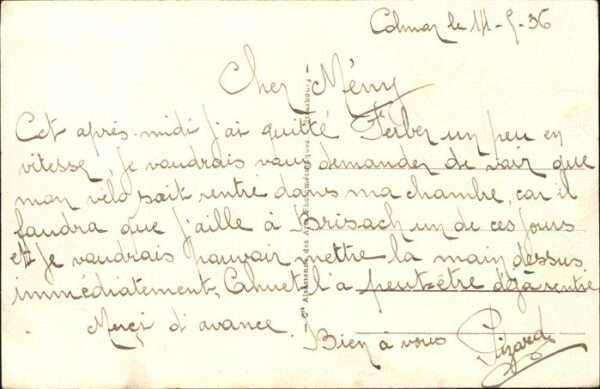 Colmar le 11-5-36
Cher Mémy
Cet après-midi j'ai quitté Ferber un peu en
vitesse, je voudrais vous demander de voir que
mon vélo soit rentré dans ma chambre, car il
faudra que j'aille à Brisach un de ces jours
et je voudrais pouvoir mettre la main dessus
immédiatement, Cahuet l'a peut-être déjà rentré
Merci d'avance. Bien à vous